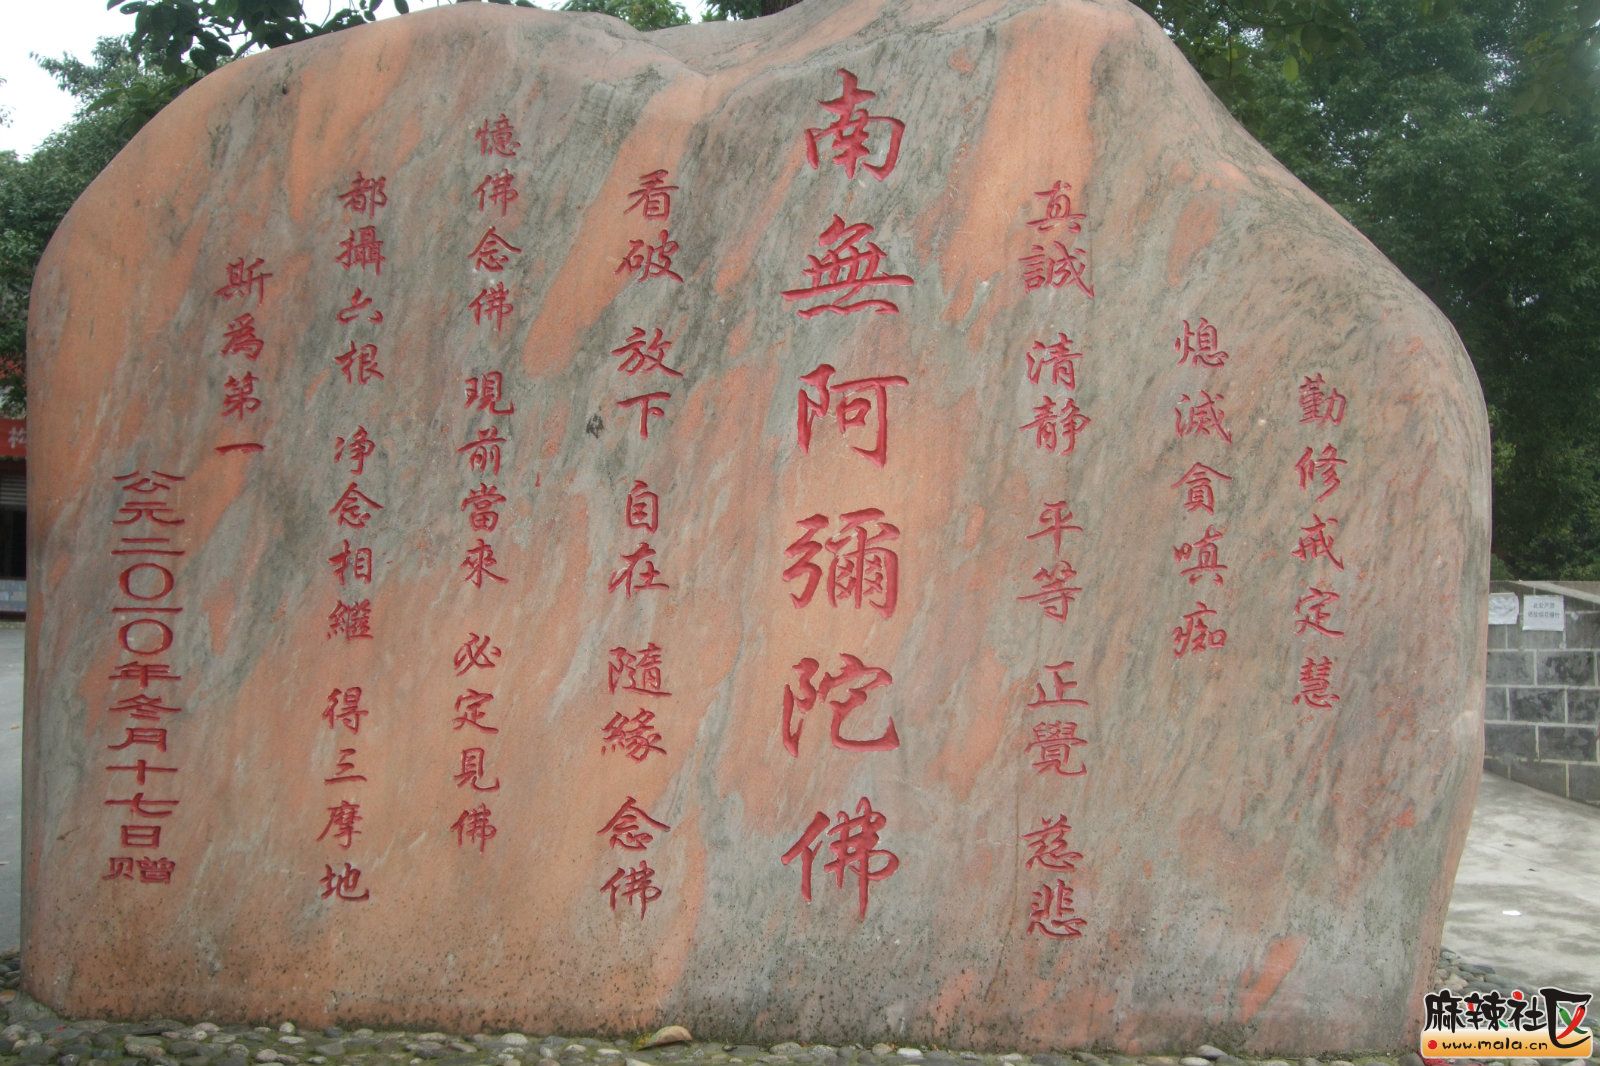 勤修戒定慧
熄滅貪嗔痴
真誠 清静 平等 正覺 慈悲
南無阿彌陀佛
看破 放下 自在 隨緣 念佛
憶佛念佛 現前當來 必定見佛
都攝六根 净念相繼 得三摩地
斯為第一
公元二〇一〇年冬月十七日赠
麻辣社区
www.mala.cn